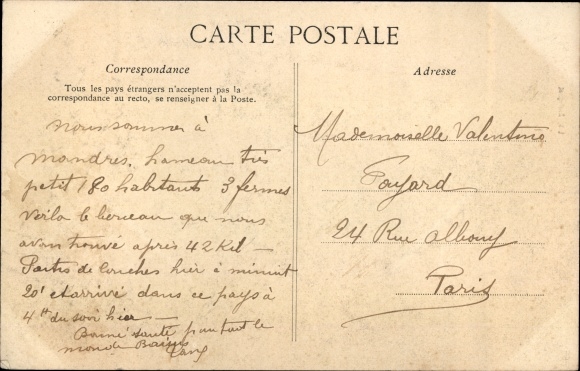 CARTE POSTALE
Correspondance
Tous les pays étrangers n'acceptent pas la
correspondance au recto, se renseigner à la Poste.
Nous sommes à
Mandres, hameau très
petit 180 habitants 3 fermes
Voila le berceau que nous
avon trouvé après 42 Kil —
Partis de Couches hier à minuit
20' et arrivé dans ce pays à
4 du soir hier —
Bonne santé pour tout le
monde
Adresse
Mademoiselle Valentine
Fayard
24 Rue Albouy
Paris